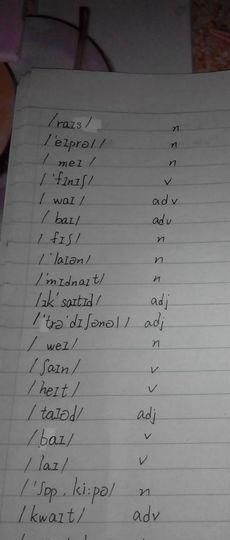 /raɪs/ n
/'eɪprəl/ n
/meɪ/ n
/'fɪnɪʃ/ v
/waɪ/ adv
/baɪ/ adv
/fɪʃ/ n
/'laɪən/ n
/'mɪdnaɪt/ n
/ɪk'saɪtɪd/ adj
/'trə'dɪʃənəl/ adj
/weɪ/ n
/ʃaɪn/ v
/heɪt/ v
/taɪəd/ adj
/baɪ/ v
/laɪ/ v
/'ʃɒp,ki:pə/ n
/kwaɪt/ adv